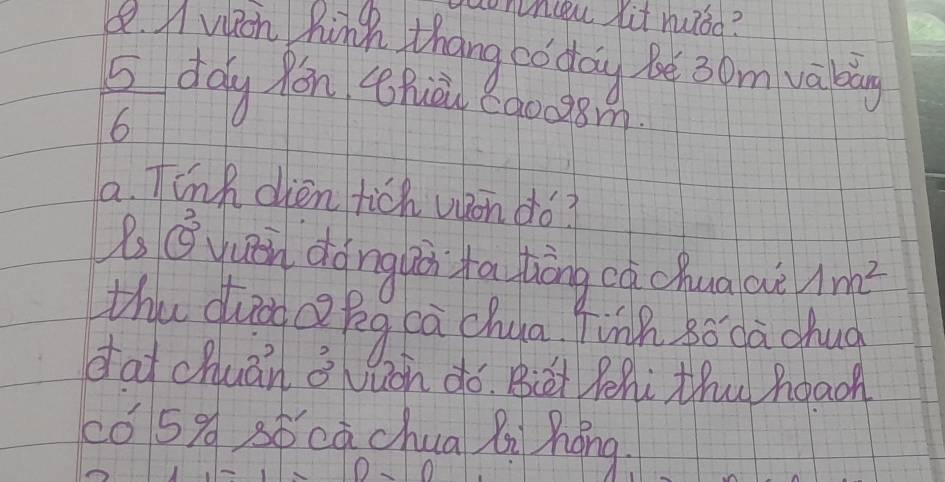 lit nước?
2. 1 vườn hình thang có đáy bé 30m và bằng
5/6 đáy lớn. Chiều cao 28m.
a. Tính diện tích vườn đó?
b. Ở vườn đó người ta trồng cà chua cứ 1m²
thu được 2kg cà chua. Tính số cà chua
đạt chuẩn ở vườn đó. Biết khi thu hoạch
có 5% số cà chua bị hỏng.